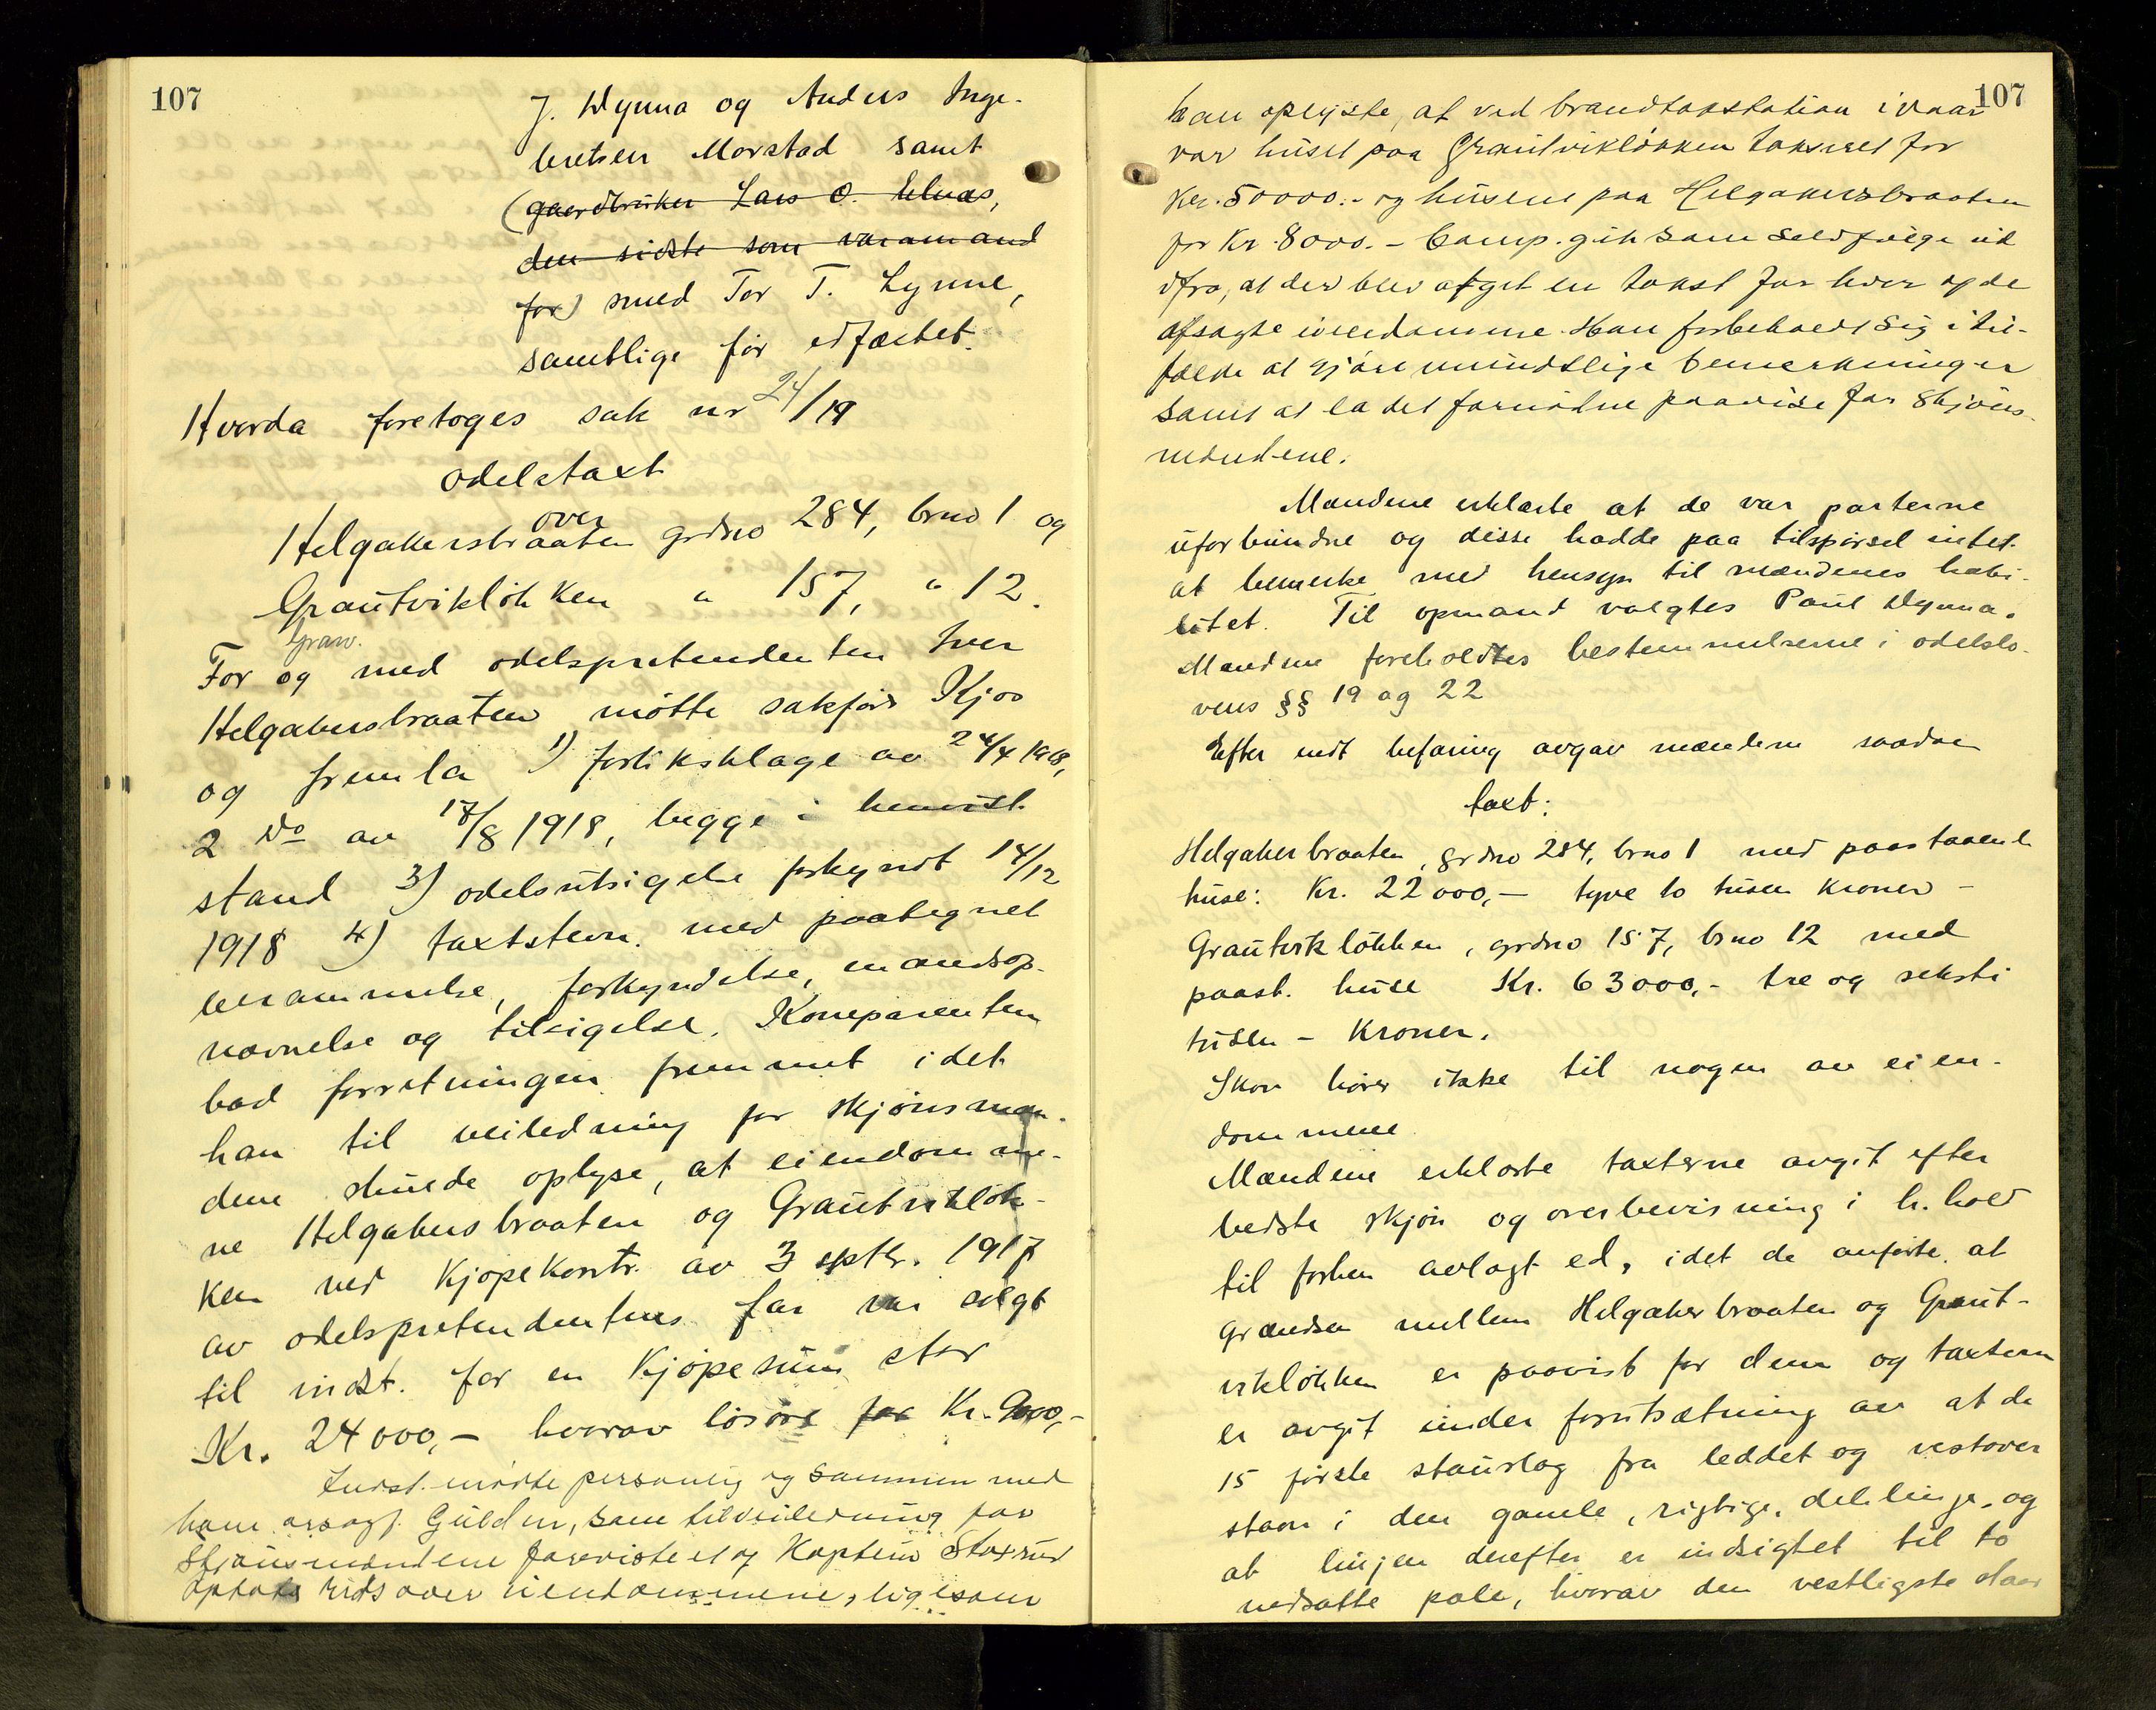 107
J. Dynna og Anders Inge-
bretsen Morstad samt
(gaardbruker Lars O. Elnæs,
den sidste som varamand
for) smed Tor T. Lynne,
samtlige før edfæstet.
Hvorda foretoges sak nr 24/19
odelstaxt
over
Helgakersbraaten grdno 284, brno 1 og
Grautvikløkken " 157, " 12.
Gran.
For og med odelspretendenten Iver
Helgakersbraaten møtte sakfør Kjos
og fremla 1) forliksklage av 24/4 1918,
2 do av 17/8 1918, begge i henvist
stand 3) odelsutsigelse forkyndt 14/12
1918 4) taxtstevn. med paategnet
berammelse, forkyndelse, mandsop-
nævnelse og tilsigelse. Komparenten
bad forretningen fremmet idet
han til veiledning for skjønsmæn-
dene skulde oplyse, at eiendomme-
ne Helgakersbraaten og Grautvikløk-
ken ved Kjøpekontr. av 3 septbr. 1917
av odelspretendentens far var solgt
til indst. for en Kjøpesum stor
Kr. 24000,- hvorav løsøre for Kr. 9000,-
Indst. mødte personlig og sammen med
ham o.r.sagf. Gulden, som til veiledning for
Skjønsmændene foreviste et af Kaptein Staxrud
optatt rids over eiendommene, ligesom
107
han oplyste, at ved brandtakstation i vaar
var huset paa Grautvikløkken taxeret for
Kr. 50000.- og husene paa Helgakersbraaten
for Kr. 8000.- Comp. gik som selvfølge ud
ifra, at der blev afgit en takst for hver af de
afsagte eiendomme. Han forbeholdt sig i til-
fælde at gjøre mundtlige bemerkninger
samt at la det fornødne paavise for skjøns-
mændene.
Mændene erklærte at de var parterne
uforbundne og disse hadde paa tilspørsel intet
at bemerke med hensyn til mændenes habi-
litet. Til opmand valgtes Paul Dynna.
Mændene foreholdtes bestemmelserne i odelslo-
vens §§ 19 og 22
Efter endt befaring avgav mændene saadan
taxt:
Helgakerbraaten, grdno 284, brno 1 med paastaaende
huse: Kr. 22000,- tyve to tusen kroner -
Grautvikløkken, grdno 157, brno 12 med
paast. huse Kr. 63000,- tre og seksti
tusen - Kroner.
Skov hører ikke til nogen av eien-
dommene
Mændene erklærte taxterne avgit efter
bedste skjøn og overbevisning i h. hold
til forhen avlagt ed, idet de anførte at
grændsen mellem Helgakerbraaten og Graut-
vikløkken er paavist for dem og taxterne
er avgit under forutsætning av at de
15 første staurlag fra leddet og vestover
staar i den gamle, rigtige, delelinje, og
at linjen derefter er indsigtet til to
nedsatte pæle, hvorav den vestligste staar